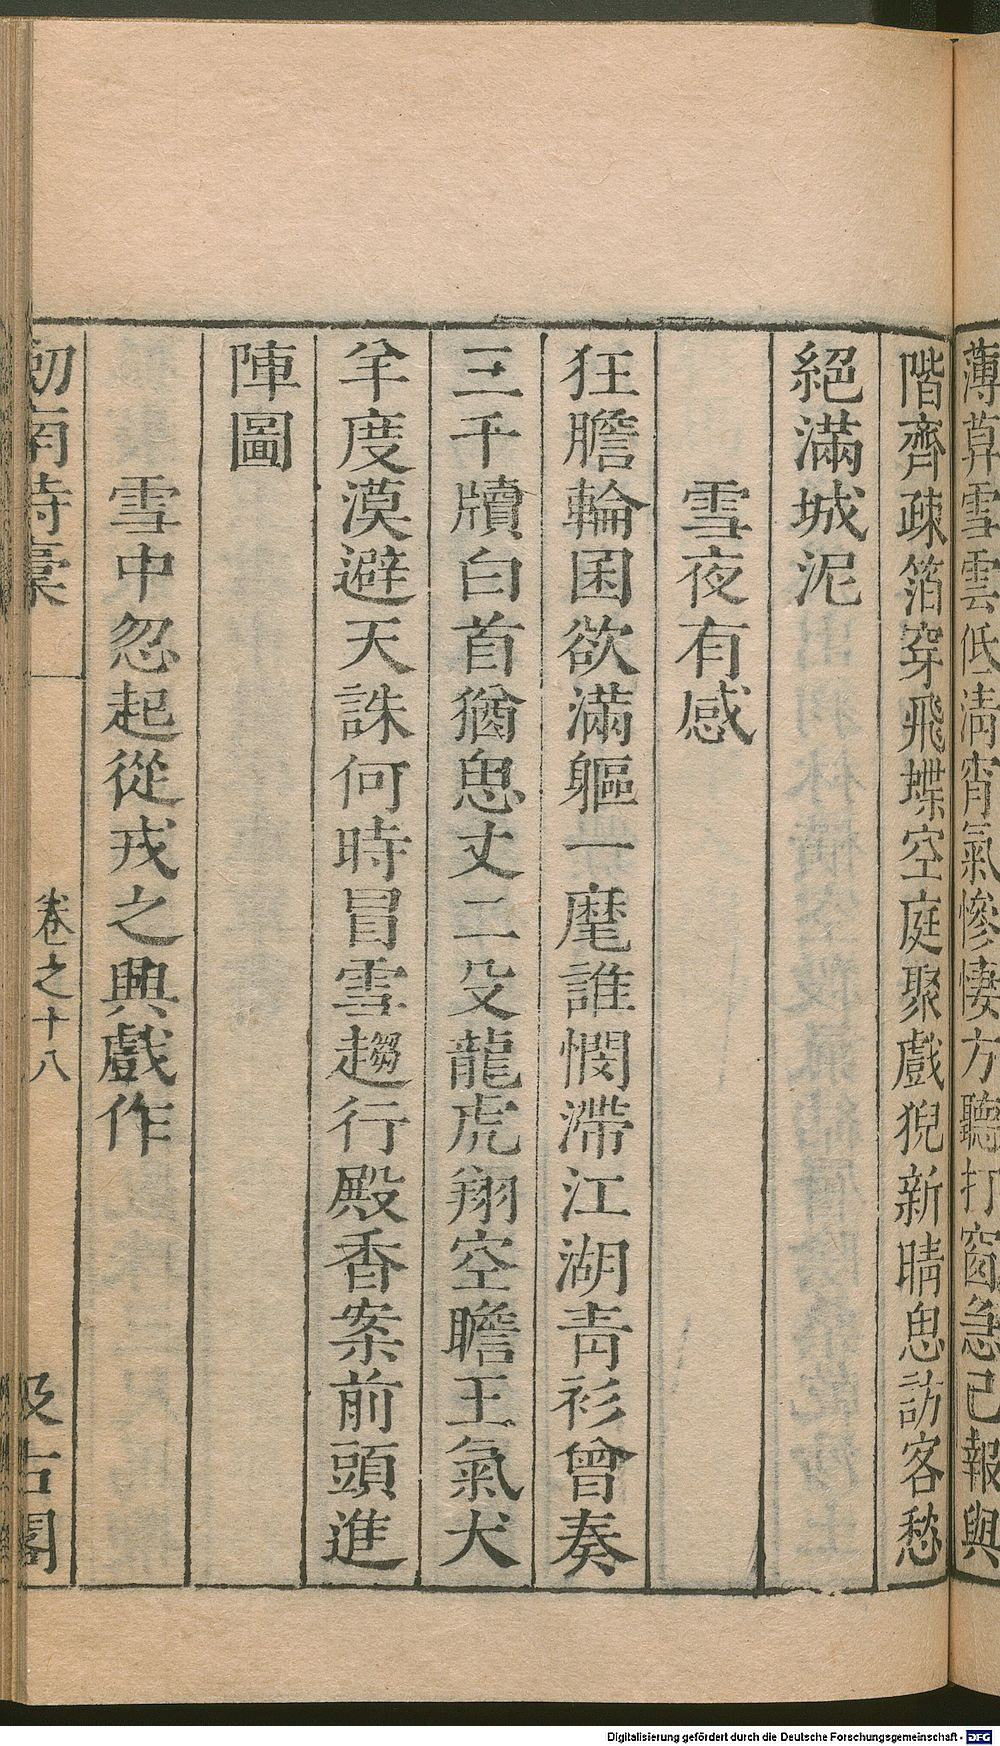 薄暮雪雲低清宵氣慘悽方聽打窗急已報與
階齊疎箔穿飛蝶空庭聚戲猊新晴思訪客愁
絕滿城泥
雪夜有感
狂膽輪囷欲滿軀一麾誰憫滯江湖青衫曾奏
三千牘白首猶思丈二殳龍虎翔空瞻王氣犬
羊度漠避天誅何時冒雪趨行殿香案前頭進
陣圖
雪中忽起從戎之興戲作
劒南詩稾
卷之十八
汲古閣
Digitalisierung gefördert durch die Deutsche Forschungsgemeinschaft - DFG